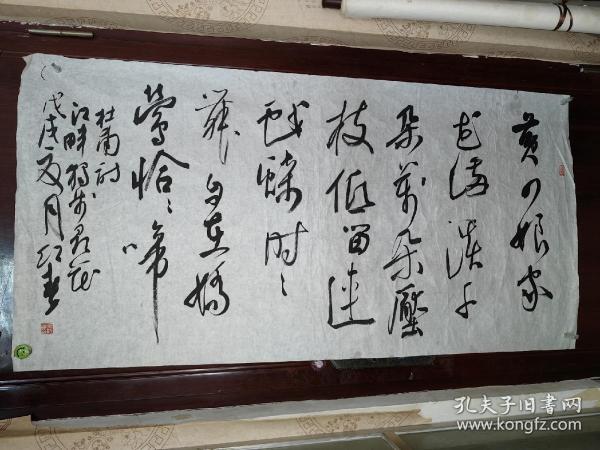 黄四娘家
花满溪千
朵万朵压
枝低留连
戏蝶时时
舞自在娇
莺恰恰啼
杜甫诗
江畔独步寻花
戊戌夏月
孔夫子旧书网
www.kongfz.com